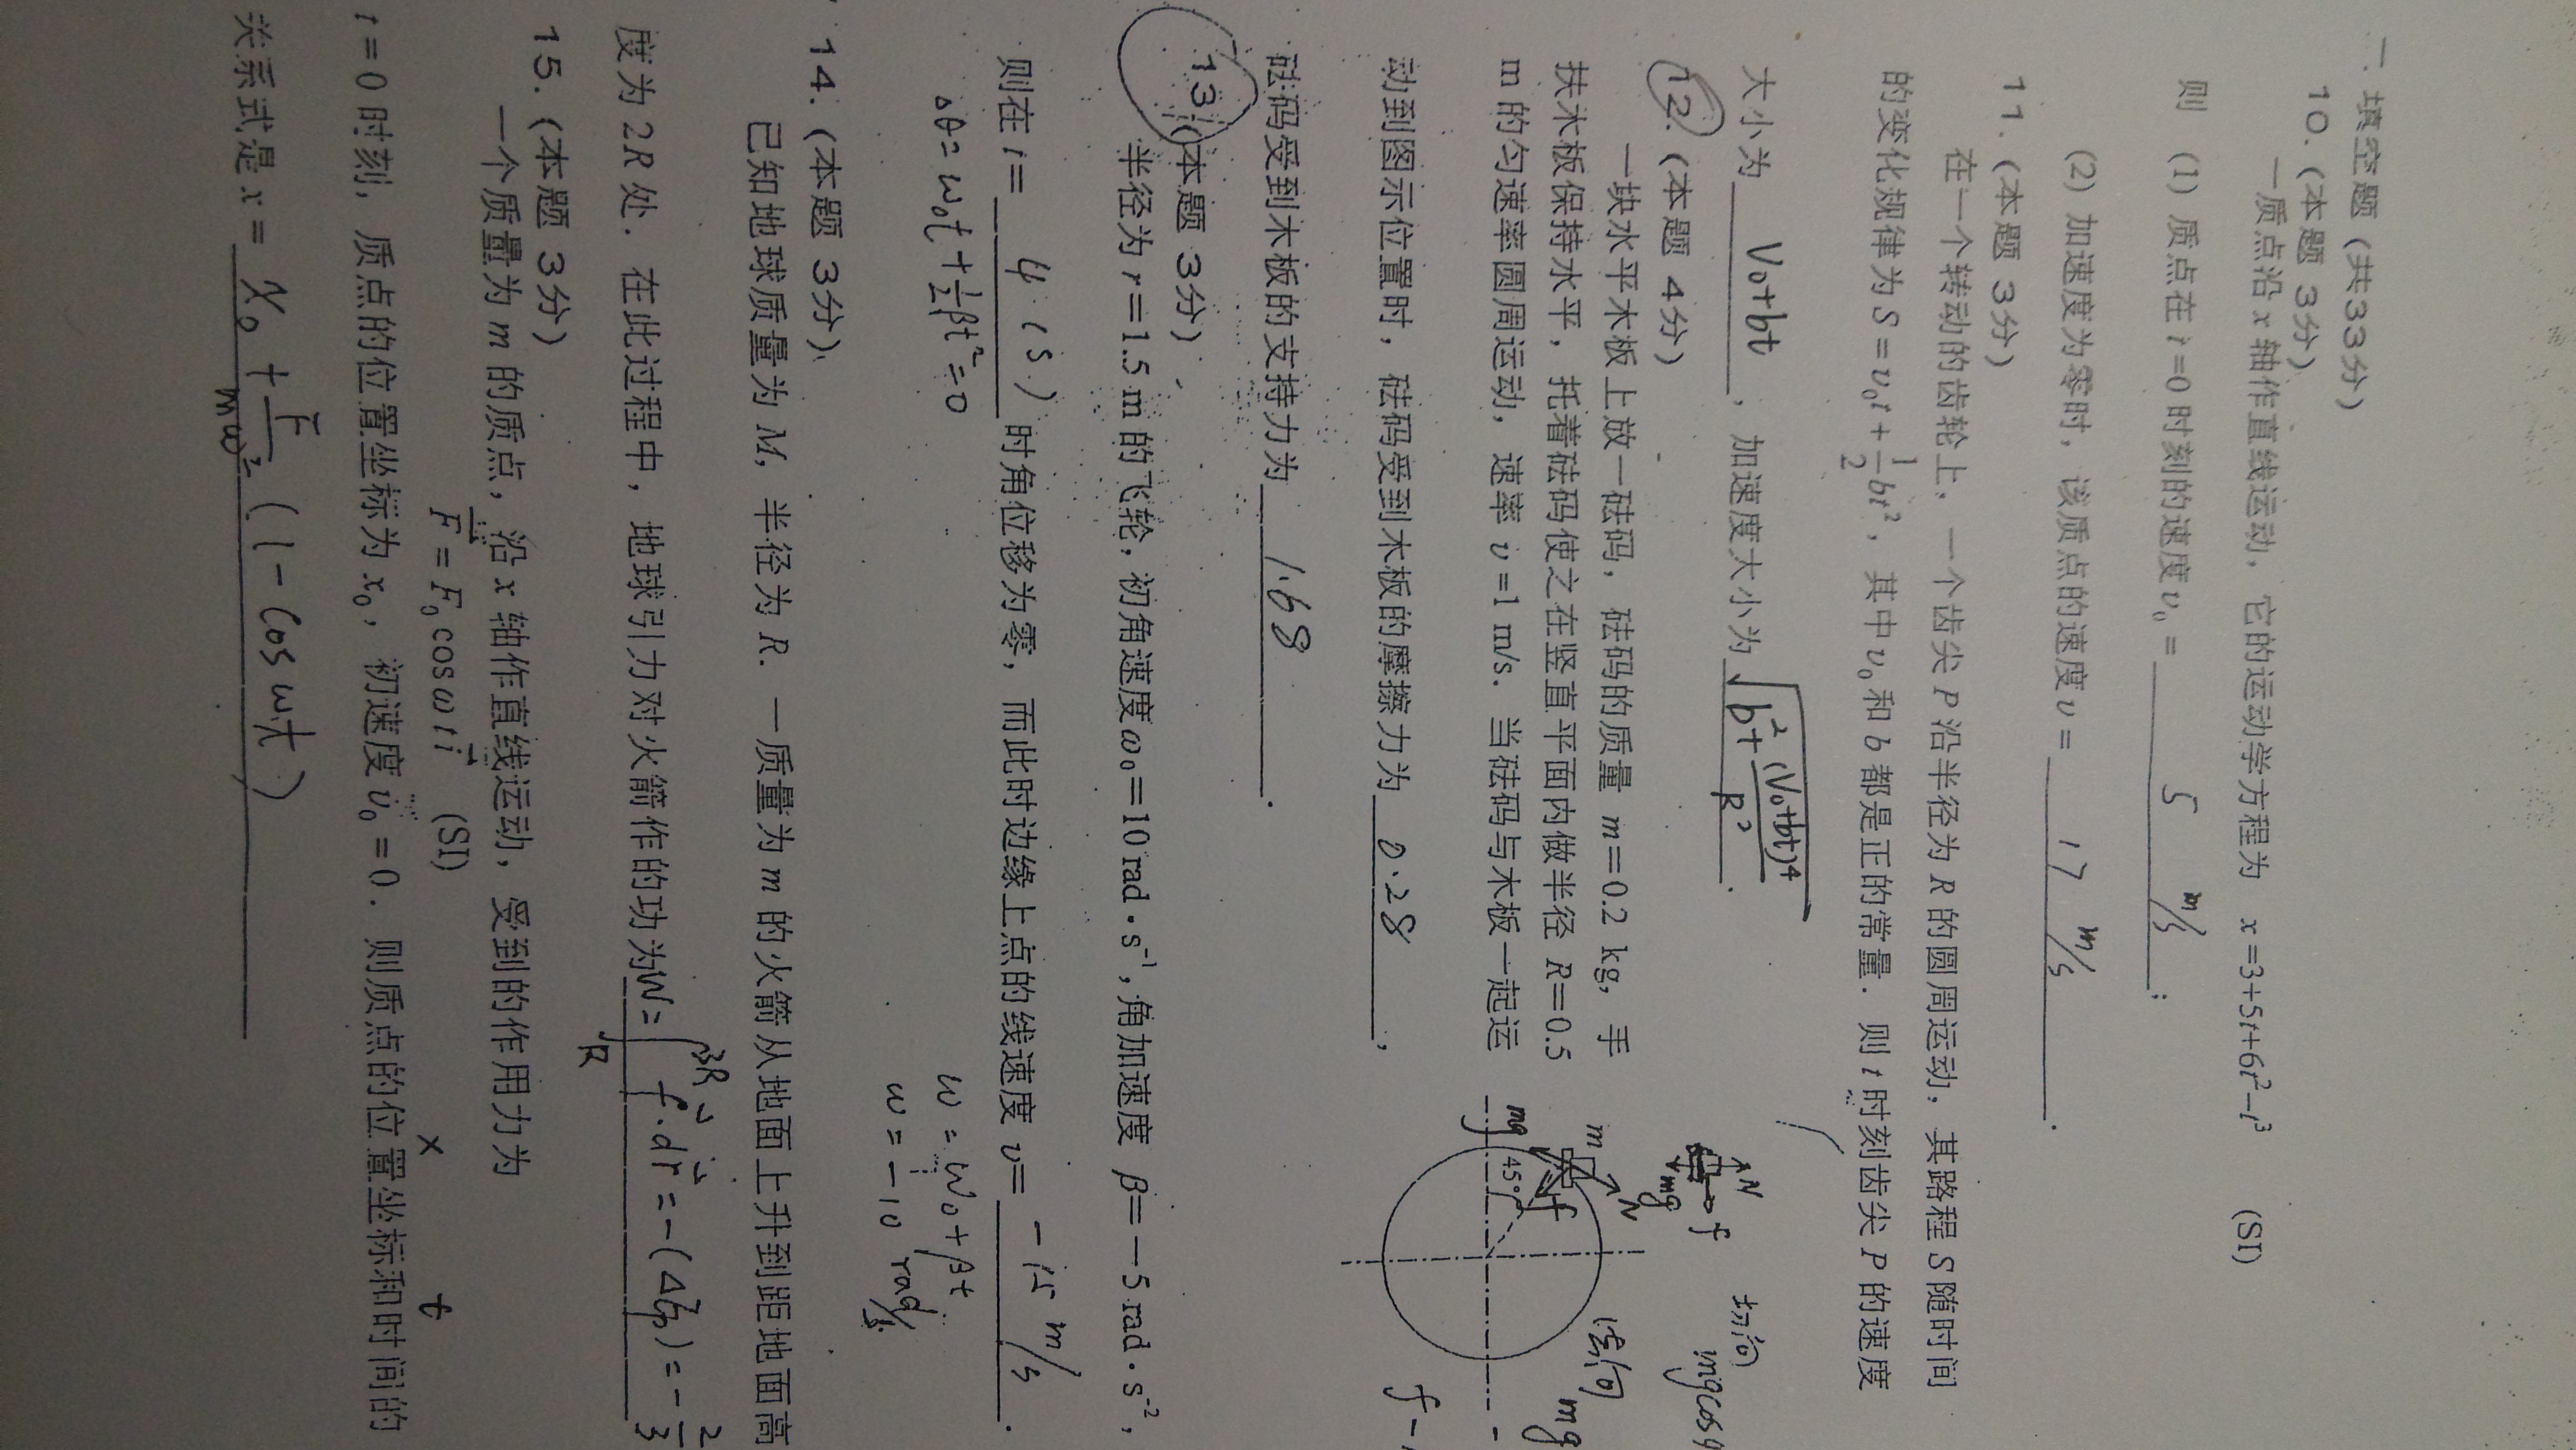 一. 填空题 (共33分)
10. (本题 3分)
一质点沿 x 轴作直线运动, 它的运动学方程为 x =3+5t+6t²-t³ (SI)
则 (1) 质点在 t =0 时刻的速度 v₀ = 5 m/s ;
(2) 加速度为零时, 该质点的速度 v = 17 m/s .
11. (本题 3分)
在一个转动的齿轮上, 一个齿尖 P 沿半径为 R 的圆周运动, 其路程 S 随时间
的变化规律为 S = v₀t + 1/2 bt², 其中 v₀ 和 b 都是正的常量. 则 t 时刻齿尖 P 的速度
大小为 V₀+bt , 加速度大小为 √(b²+(V₀+bt)⁴/R²) .
12. (本题 4分)
一块水平木板上放一砝码, 砝码的质量 m=0.2 kg, 手
扶木板保持水平, 托着砝码使之在竖直平面内做半径 R=0.5
m 的匀速率圆周运动, 速率 v =1 m/s. 当砝码与木板一起运
动到图示位置时, 砝码受到木板的摩擦力为 0.28 ,
砝码受到木板的支持力为 1.68 .
N
mg
f
切向
mgcos4
m
N
mg
f
45°
法向
mg
f -
13. (本题 3分)
半径为 r =1.5 m 的飞轮, 初角速度 ω₀=10 rad · s⁻¹, 角加速度 β= -5 rad · s⁻²,
则在 t= 4 (s) 时角位移为零, 而此时边缘上点的线速度 v= -15 m/s .
Δθ= ω₀t + 1/2 βt² = 0
ω = ω₀ + βt
ω = -10 rad/s.
14. (本题 3分)
已知地球质量为 M, 半径为 R. 一质量为 m 的火箭从地面上升到距地面高
度为 2R 处. 在此过程中, 地球引力对火箭作的功为 W = ∫_R^3R f⃗·dr⃗ = -(ΔEp) = - 2/3
15. (本题 3分)
一个质量为 m 的质点, 沿 x 轴作直线运动, 受到的作用力为
F⃗ = F₀ cosω t i⃗ (SI)
x t
t = 0 时刻, 质点的位置坐标为 x₀, 初速度 v⃗₀ = 0. 则质点的位置坐标和时间的
关系式是 x = X₀ + F/mω² (1 - cosωt)